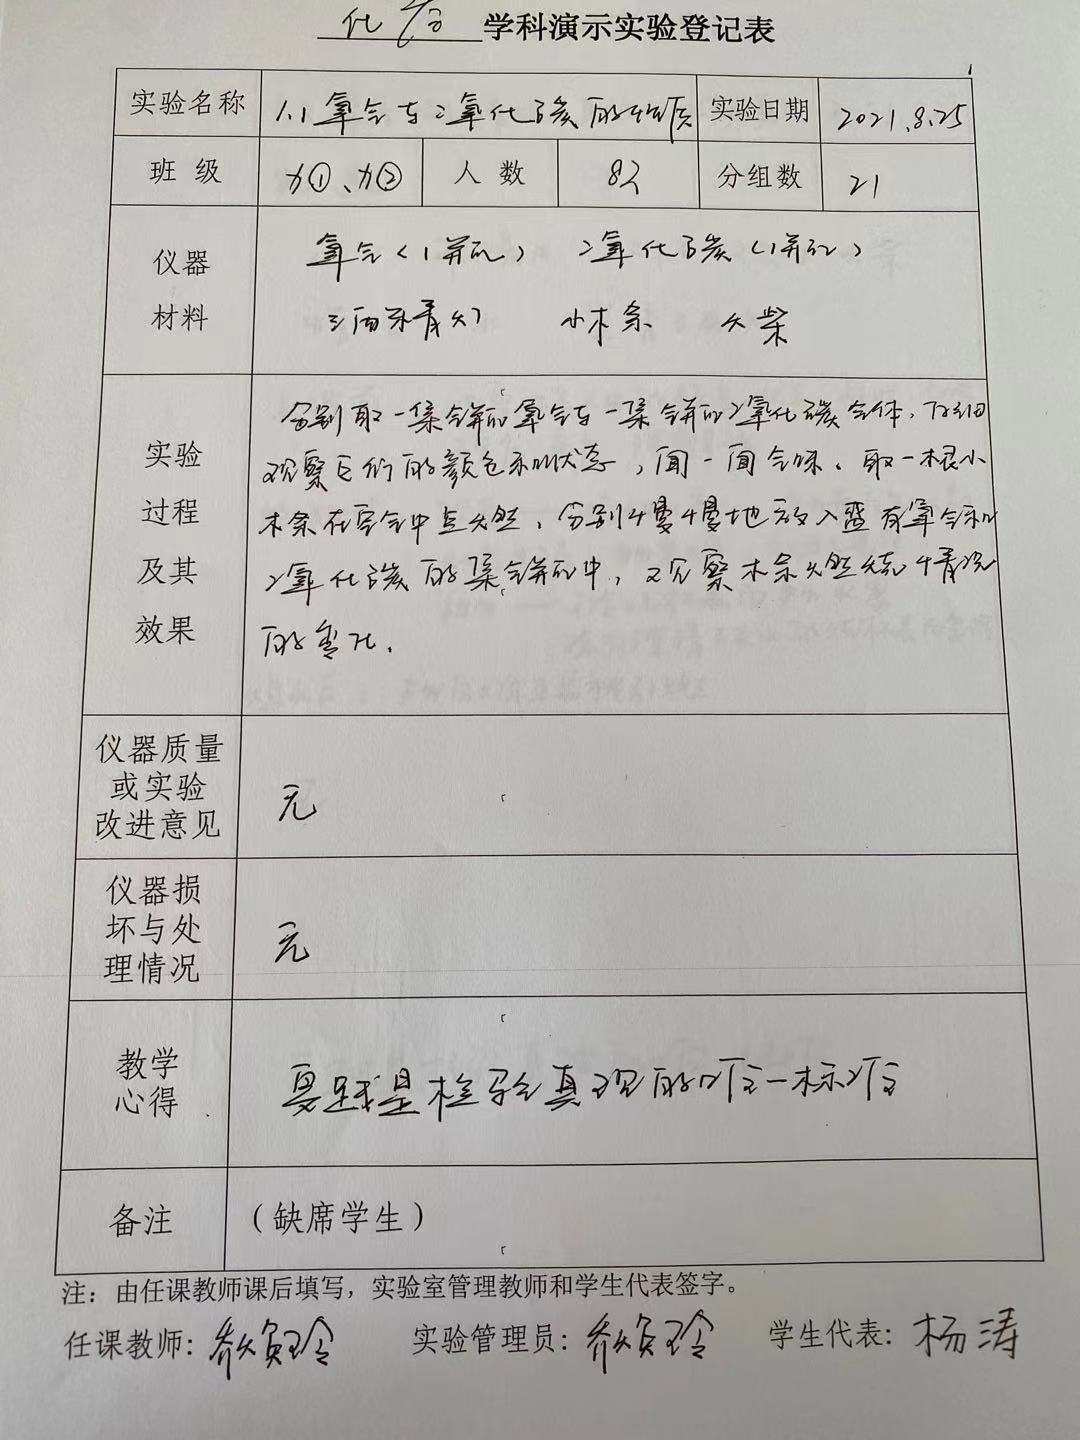 化学 学科演示实验登记表
实验名称 1.1氧气与二氧化碳的性质 实验日期 2021.8.25
班级 九①、九② 人数 82 分组数 21
仪器
材料
氧气(1瓶) 二氧化碳(1瓶)
酒精灯 小木条 火柴
实验
过程
及其
效果
分别取一集气瓶的氧气与一集气瓶的二氧化碳气体,仔细
观察它们的颜色和状态,闻一闻气味。取一根小
木条在空气中点燃,分别慢慢地放入盛有氧气和
二氧化碳的集气瓶中,观察木条燃烧情况
的变化.
仪器质量
或实验
改进意见
无
仪器损
坏与处
理情况
无
教学
心得
实践是检验真理的唯一标准
备注 (缺席学生)
注:由任课教师课后填写,实验室管理教师和学生代表签字。
任课教师: 实验管理员: 学生代表:杨涛